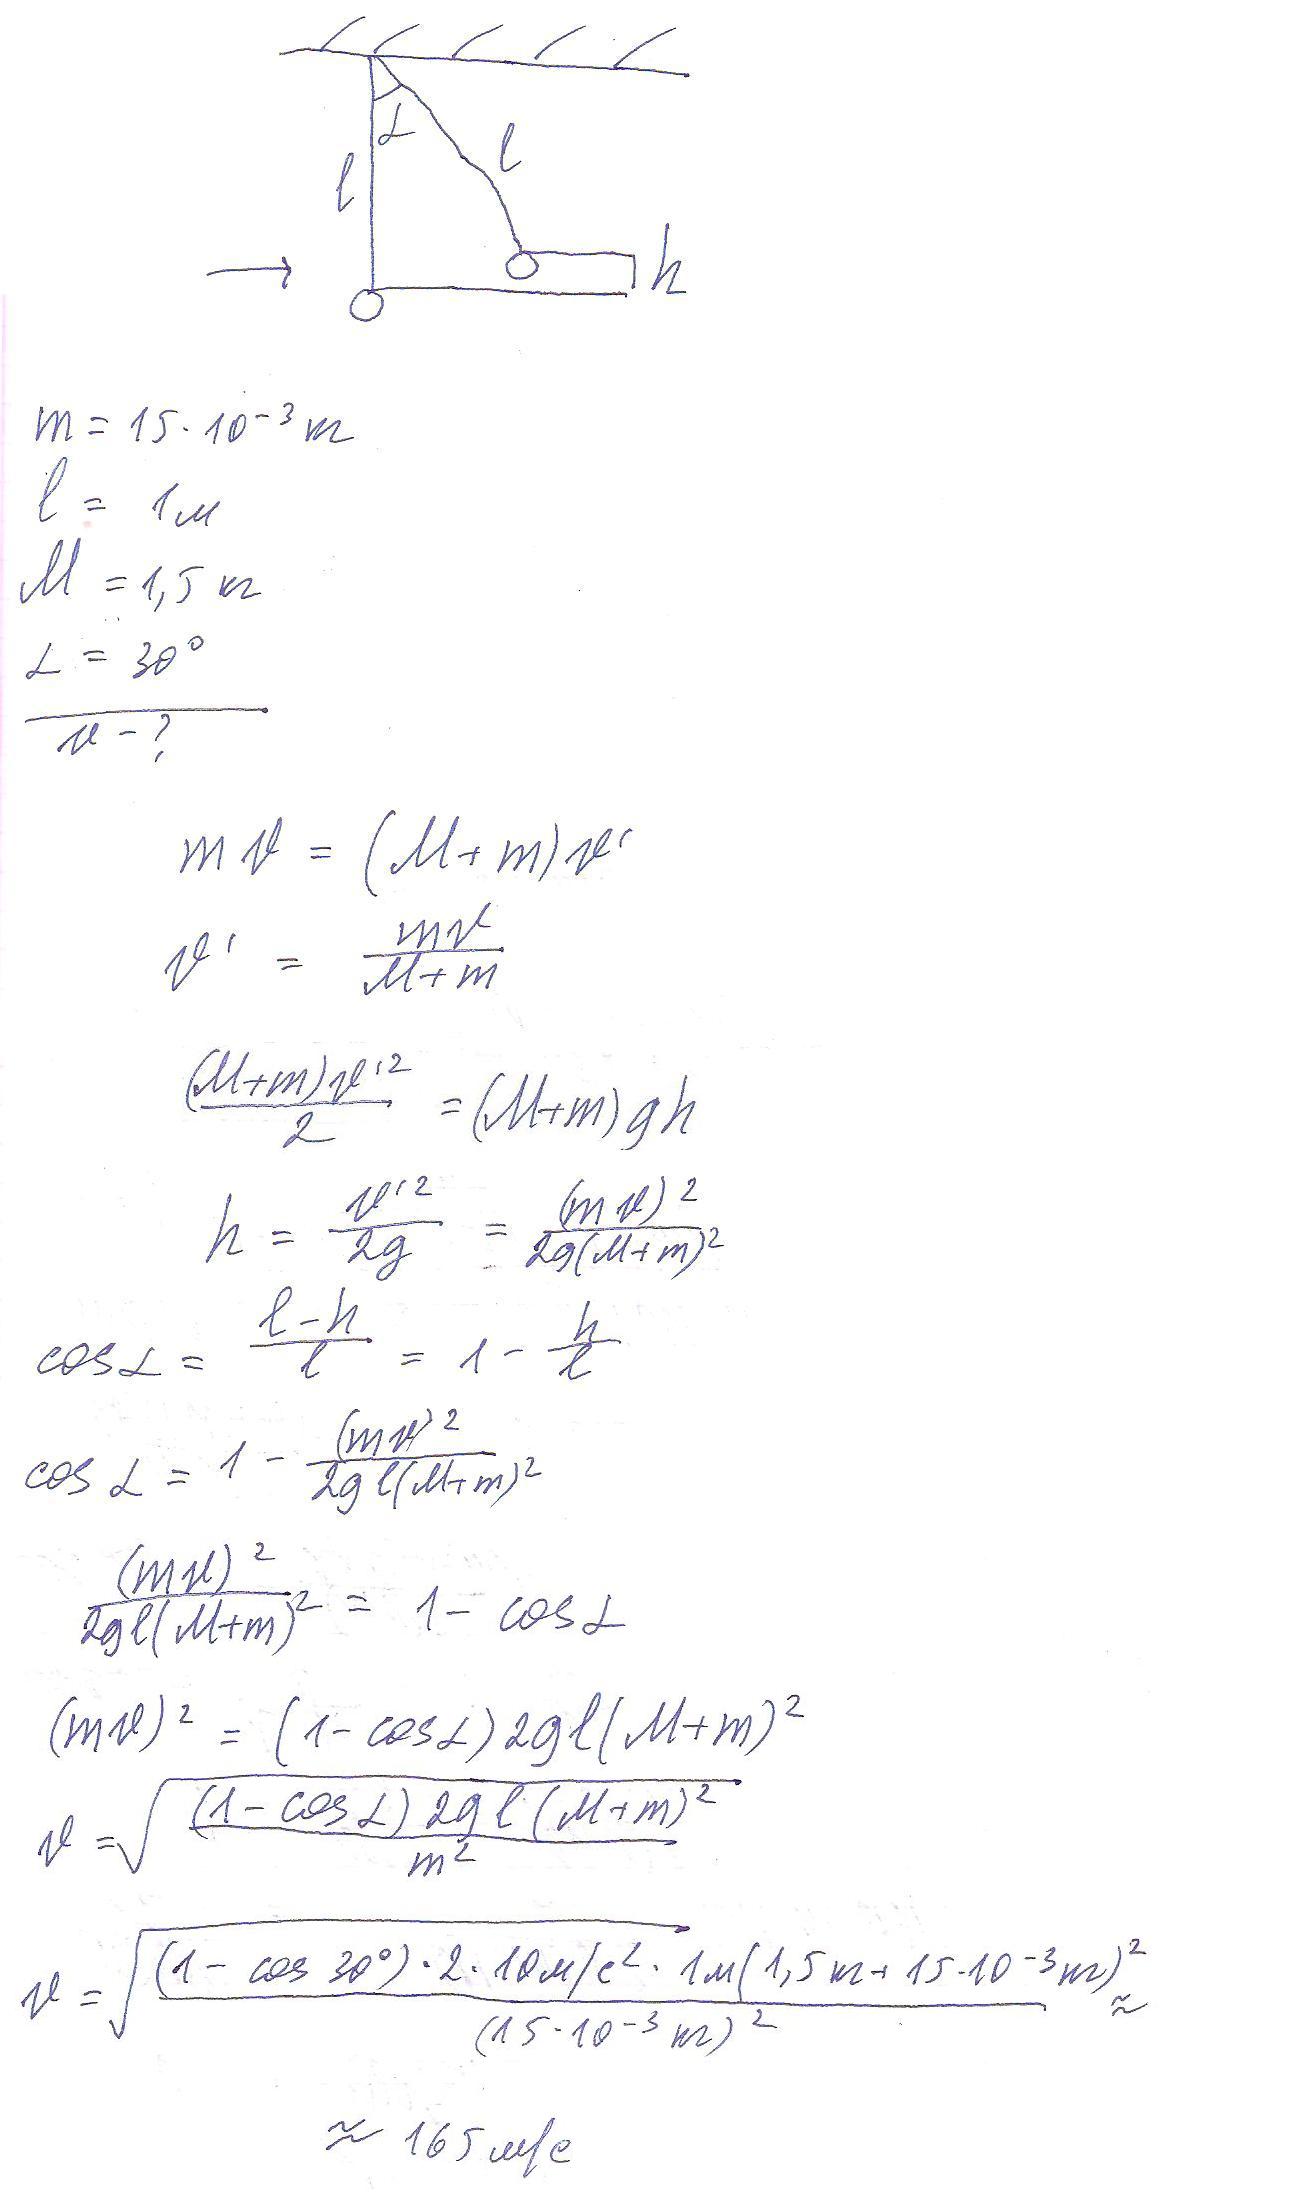 α
l
l
h
m = 15·10⁻³ кг
l = 1 м
M = 1,5 кг
α = 30°
v - ?
mv = (M+m)v'
v' = mv/(M+m)
(M+m)v'²/2 = (M+m)gh
h = v'²/2g = (mv)²/2g(M+m)²
cosα = (l-h)/l = 1 - h/l
cosα = 1 - (mv)²/2gl(M+m)²
(mv)²/2gl(M+m)² = 1 - cosα
(mv)² = (1-cosα)2gl(M+m)²
v = √((1-cosα)2gl(M+m)²/m²)
v = √((1-cos30°)·2·10м/с²·1м(1,5кг+15·10⁻³кг)²/(15·10⁻³кг)²) ≈
≈ 165 м/с